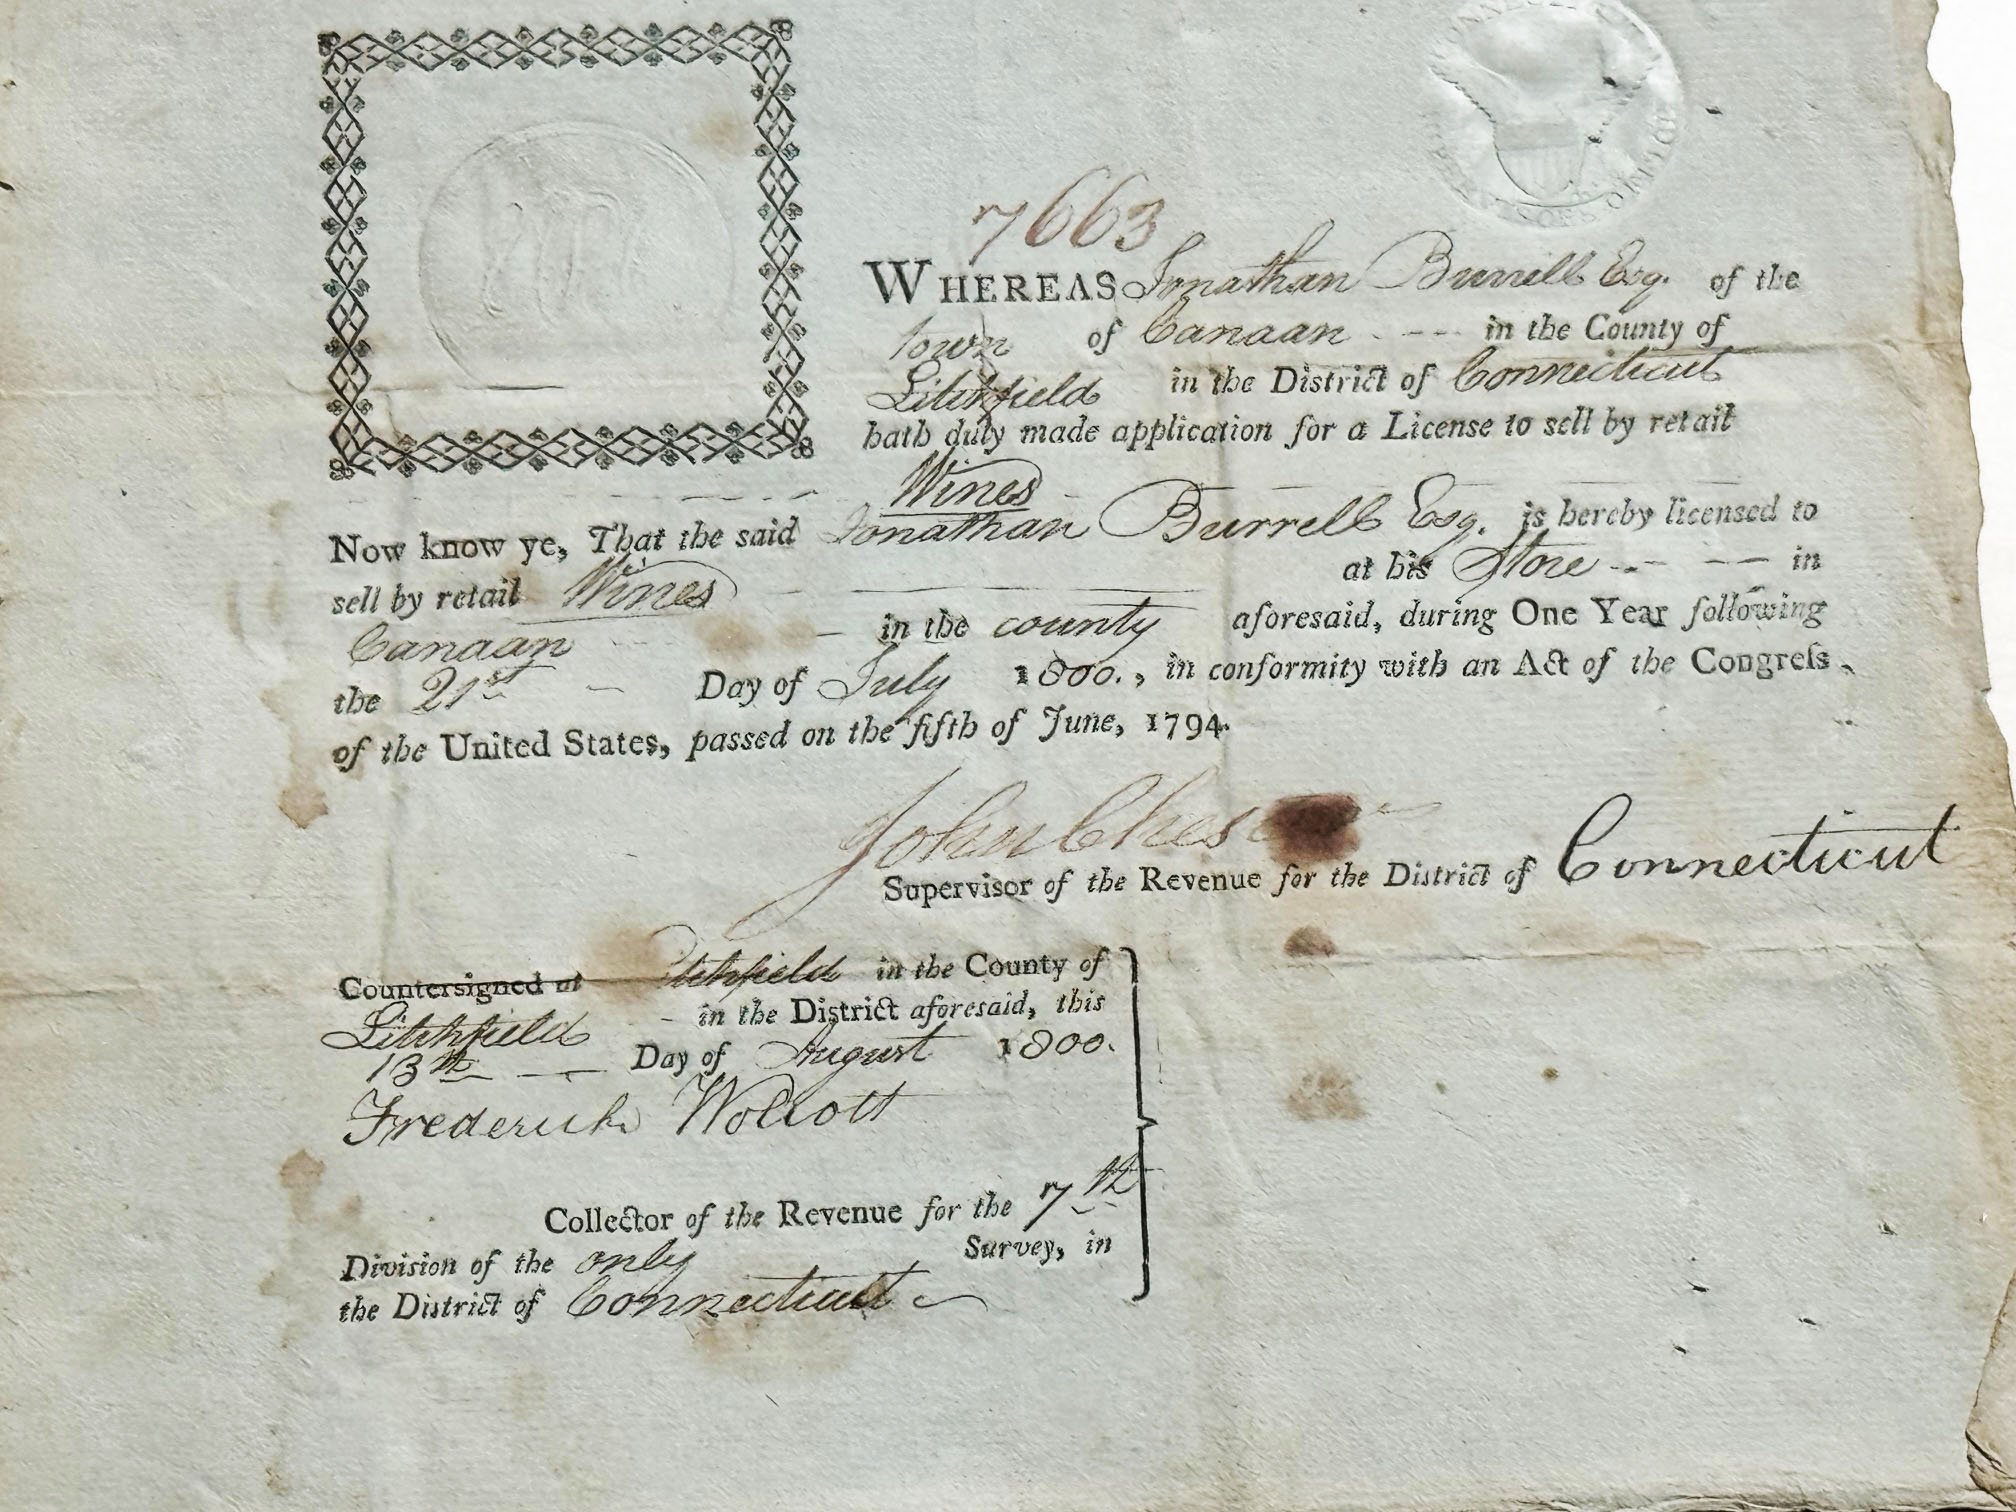 7663
WHEREAS Jonathan Burrell Esq. of the
town of Canaan - - - in the County of
Litchfield in the District of Connecticut
hath duly made application for a License to sell by retail
Wines
Now know ye, That the said Jonathan Burrell Esq. is hereby licensed to
sell by retail Wines at his Store - - - - in
Canaan - in the county aforesaid, during One Year following
the 21st - Day of July 1800., in conformity with an Act of the Congreſs
of the United States, passed on the fifth of June, 1794.
John Ches
Supervisor of the Revenue for the District of Connecticut
Countersigned at Litchfield in the County of
Litchfield - in the District aforesaid, this
13th - - Day of August 1800.
Frederick Wolcott
Collector of the Revenue for the 7th
Division of the only Survey, in
the District of Connecticut